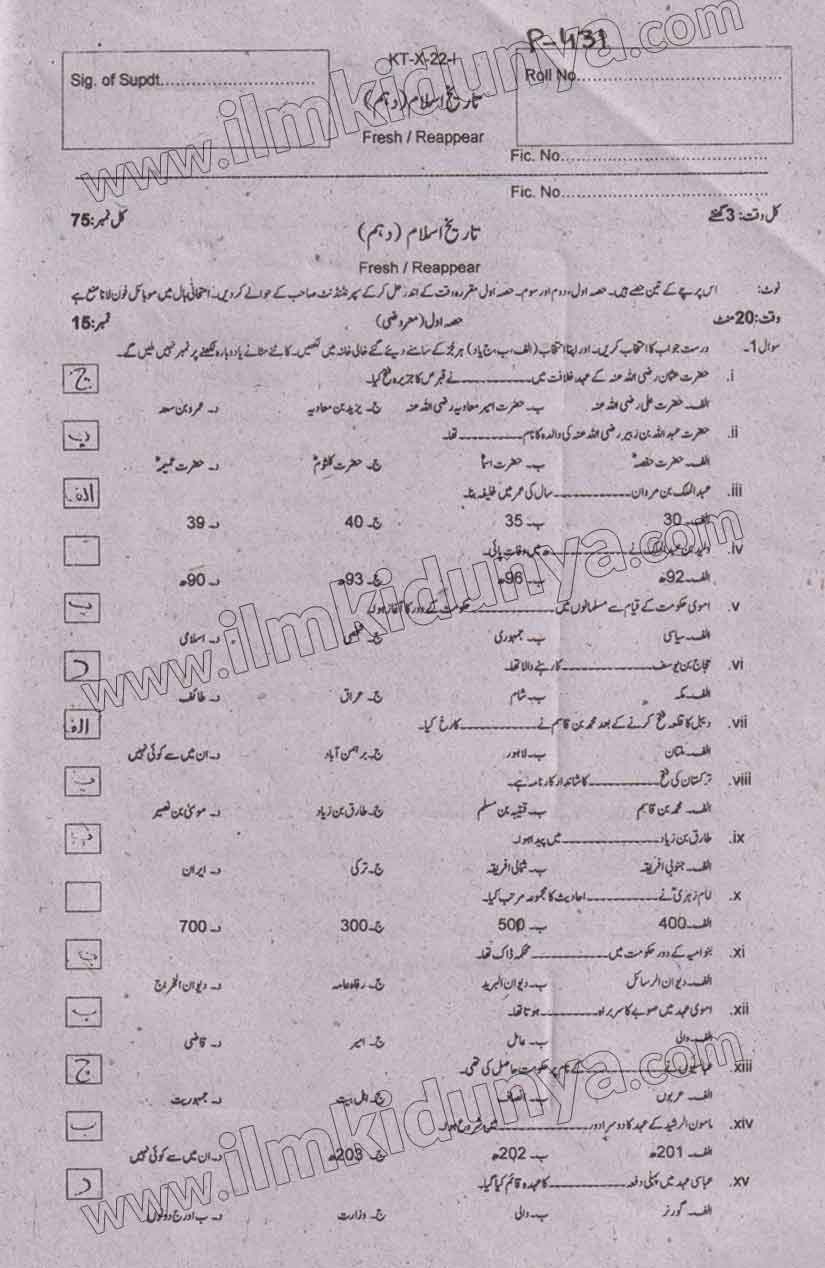 P-431
KT-X-22-I
Sig. of Supdt..............................
Roll No.....................................
تاریخ اسلام (دہم)
Fresh / Reappear
Fic. No.....................................
Fic. No.....................................
کل وقت: 3 گھنٹے
کل نمبر: 75
تاریخ اسلام (دہم)
Fresh / Reappear
نوٹ: اس پرچے کے تین حصے ہیں۔ حصہ اول، دوم اور سوم۔ حصہ اول مقررہ وقت کے اندر حل کر کے سپرنٹنڈنٹ صاحب کے حوالے کردیں۔ امتحانی ہال میں موبائل فون لانا منع ہے
وقت: 20 منٹ حصہ اول (معروضی) نمبر: 15
سوال 1۔ درست جواب کا انتخاب کریں۔ اور اپنا انتخاب (الف، ب، ج یا د) ہر جز کے سامنے دیئے گئے خالی خانہ میں لکھیں۔ کاٹنے مٹانے یا دوبارہ لکھنے پر نمبر نہیں ملیں گے۔
i. حضرت عثمان رضی اللہ عنہ کے عہد خلافت میں ____________ نے قبرص کا جزیرہ فتح کیا۔ ج
الف۔ حضرت علی رضی اللہ عنہ ب۔ حضرت امیر معاویہ رضی اللہ عنہ ج۔ یزید بن معاویہ د۔ عمرو بن سعد
ii. حضرت عبداللہ بن زبیر رضی اللہ عنہ کی والدہ کا نام ____________ تھا۔ ب
الف۔ حضرت حفصہؓ ب۔ حضرت اسماؓ ج۔ حضرت کلثومؓ د۔ حضرت
iii. عبدالملک بن مروان ____________ سال کی عمر میں خلیفہ بنا۔ الف
الف۔ 30 ب۔ 35 ج۔ 40 د۔ 39
iv. ولید بن عبدالملک نے ____________ میں وفات پائی۔
الف۔ 92ھ ب۔ 96ھ ج۔ 93ھ د۔ 90ھ
v. اموی حکومت کے قیام سے مسلمانوں میں ____________ حکومت کے دور کا آغاز ہوا۔ ب
الف۔ سیاسی ب۔ جمہوری ج۔ شخصی د۔ اسلامی
vi. حجاج بن یوسف ____________ کا رہنے والا تھا۔ د
الف۔ مکہ ب۔ شام ج۔ عراق د۔ طائف
vii. دیبل کا قلعہ فتح کرنے کے بعد محمد بن قاسم نے ____________ کا رخ کیا۔ الف
الف۔ ملتان ب۔ لاہور ج۔ برہمن آباد د۔ ان میں سے کوئی نہیں
viii. ترکستان کی فتح ____________ کا شاندار کارنامہ ہے۔ ب
الف۔ محمد بن قاسم ب۔ قتیبہ بن مسلم ج۔ طارق بن زیاد د۔ موسیٰ بن نصیر
ix. طارق بن زیاد ____________ میں پیدا ہوا۔
الف۔ جنوبی افریقہ ب۔ شمالی افریقہ ج۔ ترکی د۔ ایران
x. امام زہری نے ____________ احادیث کا مجموعہ مرتب کیا۔
الف۔ 400 ب۔ 500 ج۔ 300 د۔ 700
xi. بنو امیہ کے دور حکومت میں ____________ محکمہ ڈاک تھا۔ ب
الف۔ دیوان الرسائل ب۔ دیوان البرید ج۔ رفاہ عامہ د۔ دیوان الخراج
xii. اموی عہد میں صوبے کا سربراہ ____________ ہوتا تھا۔ ب
الف۔ والی ب۔ عامل ج۔ امیر د۔ قاضی
xiii. عباسیوں نے ____________ کے نام پر حکومت حاصل کی تھی۔ ج
الف۔ عربوں ب۔ انصاف ج۔ اہل بیت د۔ جمہوریت
xiv. مامون الرشید کے عہد کا دوسرا دور ____________ میں شروع ہوا۔ ب
الف۔ 201ھ ب۔ 202ھ ج۔ 203ھ د۔ ان میں سے کوئی نہیں
xv. عباسی عہد میں پہلی دفعہ ____________ کا عہدہ قائم کیا گیا۔ د
الف۔ گورنر ب۔ والی ج۔ وزارت د۔ ب اور ج دونوں
www.ilmkidunya.com
www.ilmkidunya.com
www.ilmkidunya.com